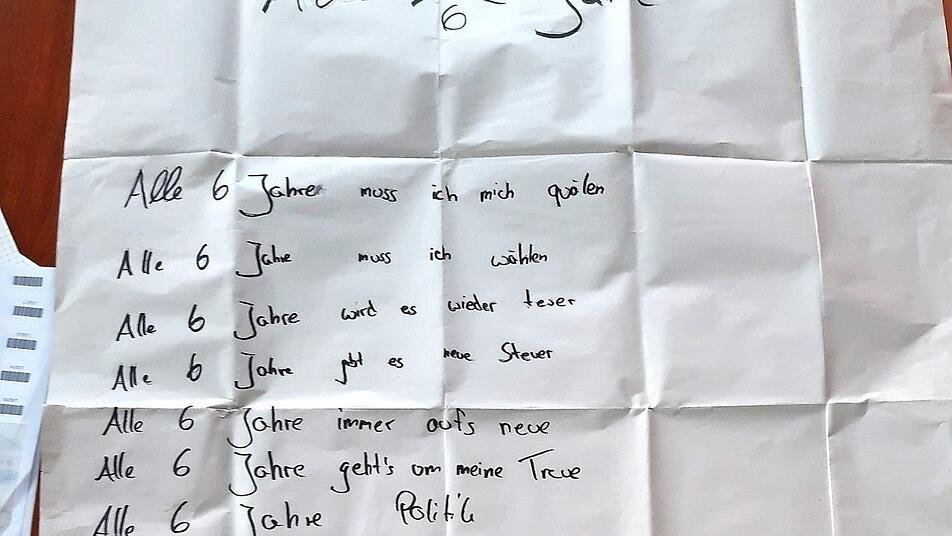 6
Alle 6 Jahre muss ich mich quälen
Alle 6 Jahre muss ich wählen
Alle 6 Jahre wird es wieder teuer
Alle 6 Jahre gbt es neue Steuer
Alle 6 Jahre immer aufs neue
Alle 6 Jahre geht's um meine Treue
Alle 6 Jahre Politik